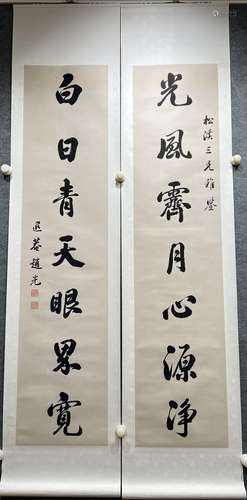 光風霽月心源净
松溪三兄雅鑒
白日青天眼界寬
退葊趙光